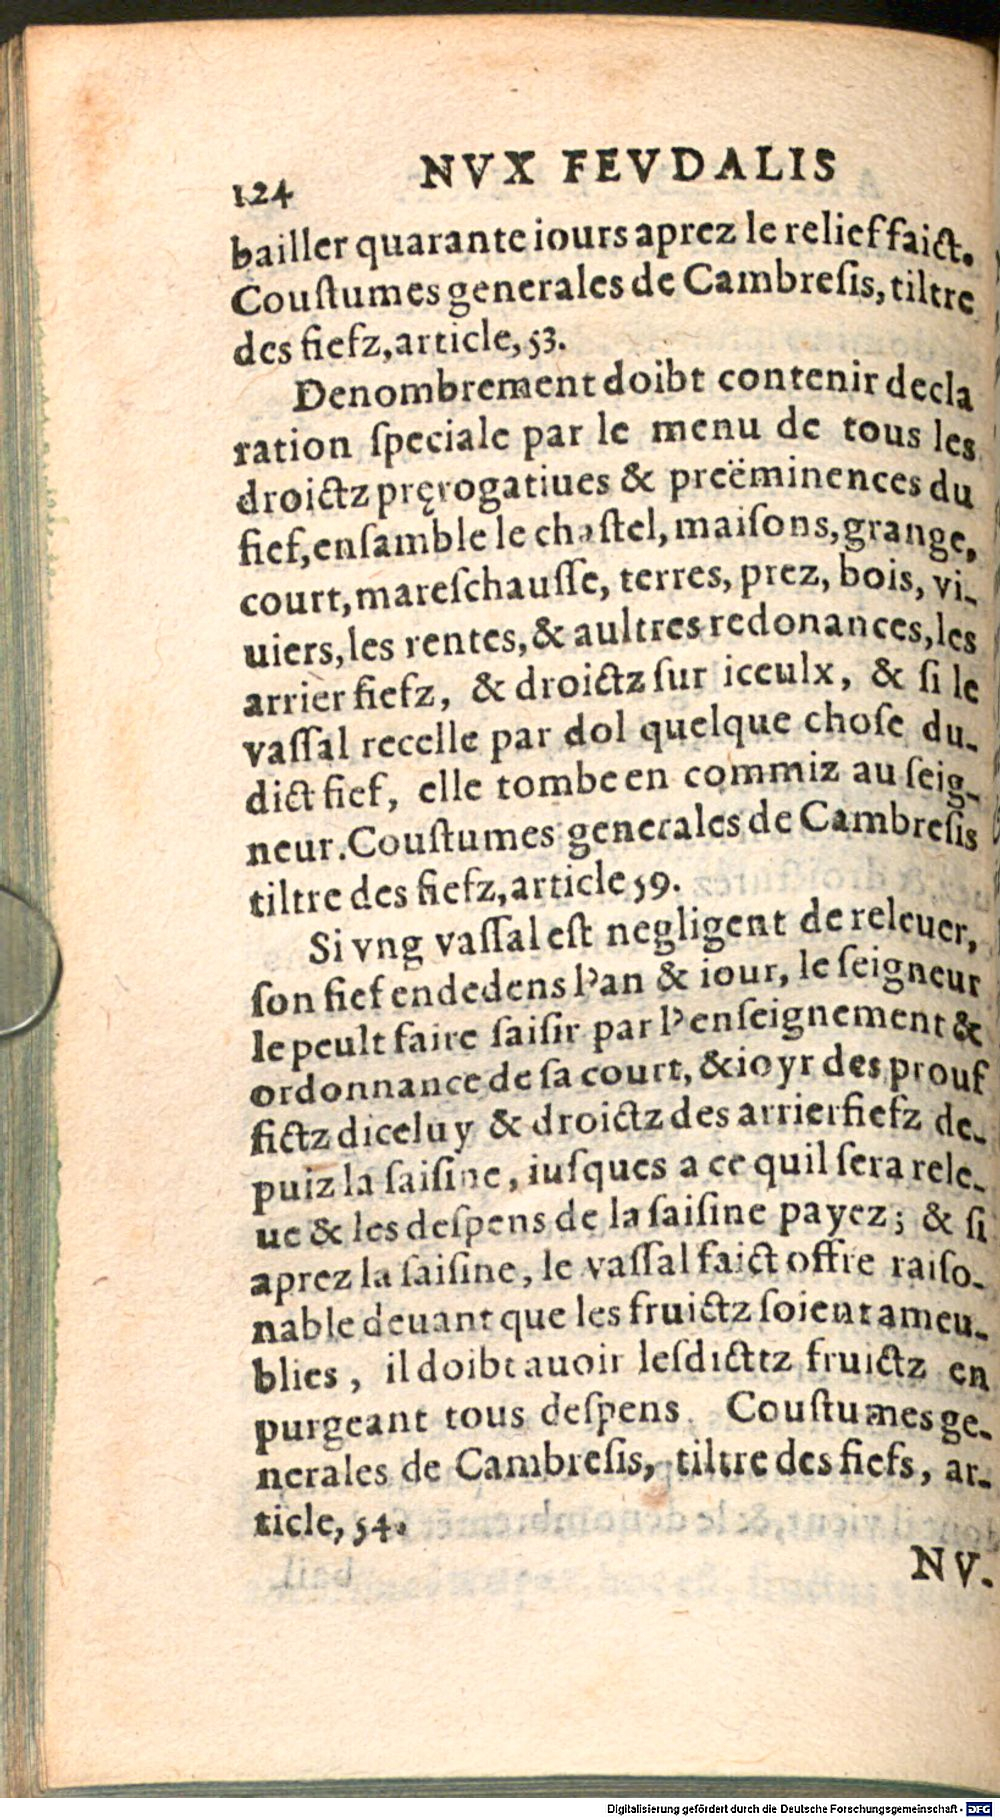 124 NVX FEVDALIS
bailler quarante iours aprez le relief faict.
Couſtumes generales de Cambreſis, tiltre
des fiefz, article, 53.
Denombrement doibt contenir decla
ration ſpeciale par le menu de tous les
droictz pręrogatiues & preëminences du
fief, enſamble le chaſtel, maiſons, grange,
court, mareſchauſſe, terres, prez, bois, vi-
uiers, les rentes, & aultres redonances, les
arrier fiefz, & droictz ſur iceulx, & ſi le
vaſſal recelle par dol quelque choſe du-
dict fief, elle tombe en commiz au ſeig-
neur. Couſtumes generales de Cambreſis
tiltre des fiefz, article 59.
Si vng vaſſal eſt negligent de releuer,
ſon fief endedens l'an & iour, le ſeigneur
le peult faire ſaiſir par l'enſeignement &
ordonnance de ſa court, & ioyr des prouf
fictz diceluy & droictz des arrierfiefz de-
puiz la ſaiſine, iuſques a ce quil ſera rele-
ue & les deſpens de la ſaiſine payez; & ſi
aprez la ſaiſine, le vaſſal faict offre raiſo-
nable deuant que les fruictz ſoient ameu-
blies, il doibt auoir leſdicttz fruictz en
purgeant tous deſpens. Couſtumes ge-
nerales de Cambreſis, tiltre des fiefs, ar-
ticle, 54.
NV-
Digitalisierung gefördert durch die Deutsche Forschungsgemeinschaft - DFG